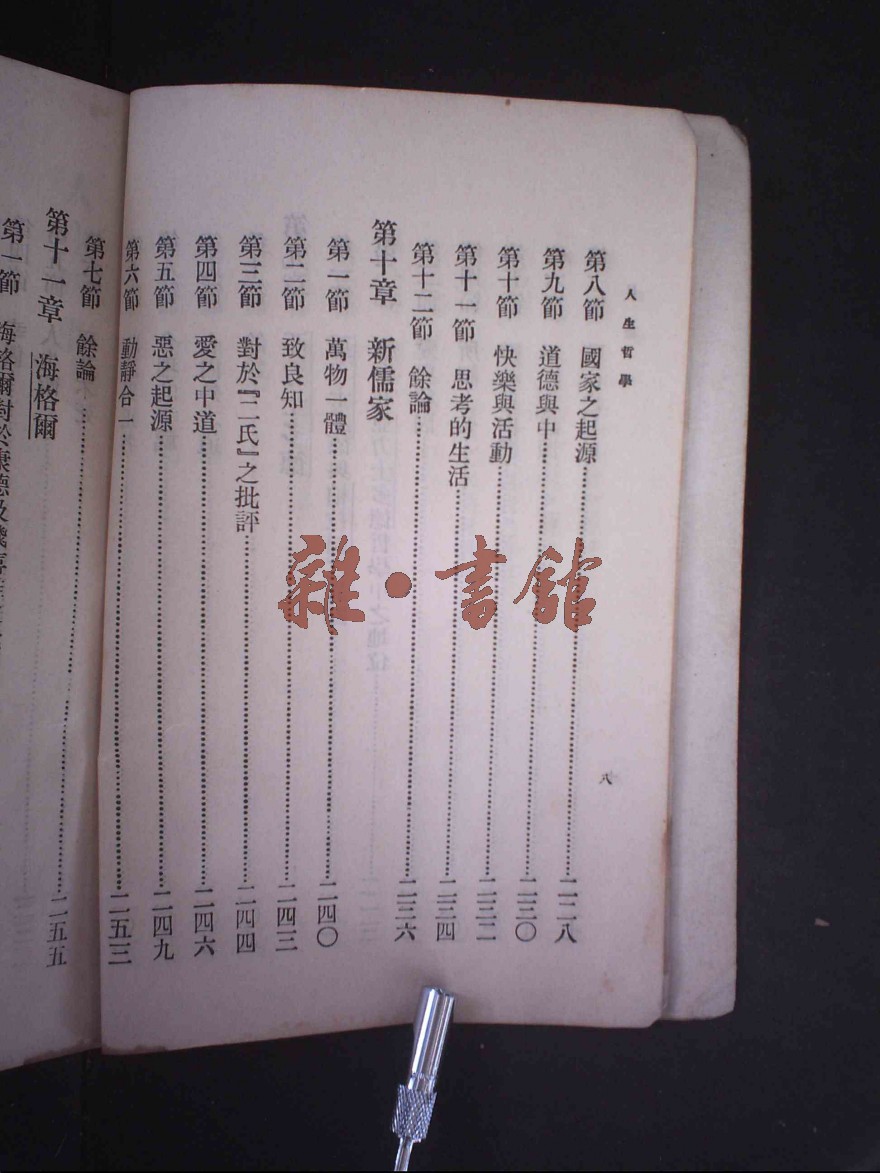 人生哲學
第八節 國家之起源……二二八
第九節 道德與中……二三〇
第十節 快樂與活動……二三二
第十一節 思考的生活……二三四
第十二節 餘論……二三六
第十章 新儒家
第一節 萬物一體……二四〇
第二節 致良知……二四三
第三節 對於『二氏』之批評……二四四
第四節 愛之中道……二四六
第五節 惡之起源……二四九
第六節 動靜合一……二五三
第七節 餘論……二五五
第十一章 海格爾
第一節 海格爾對於康德及
八
雜·書館